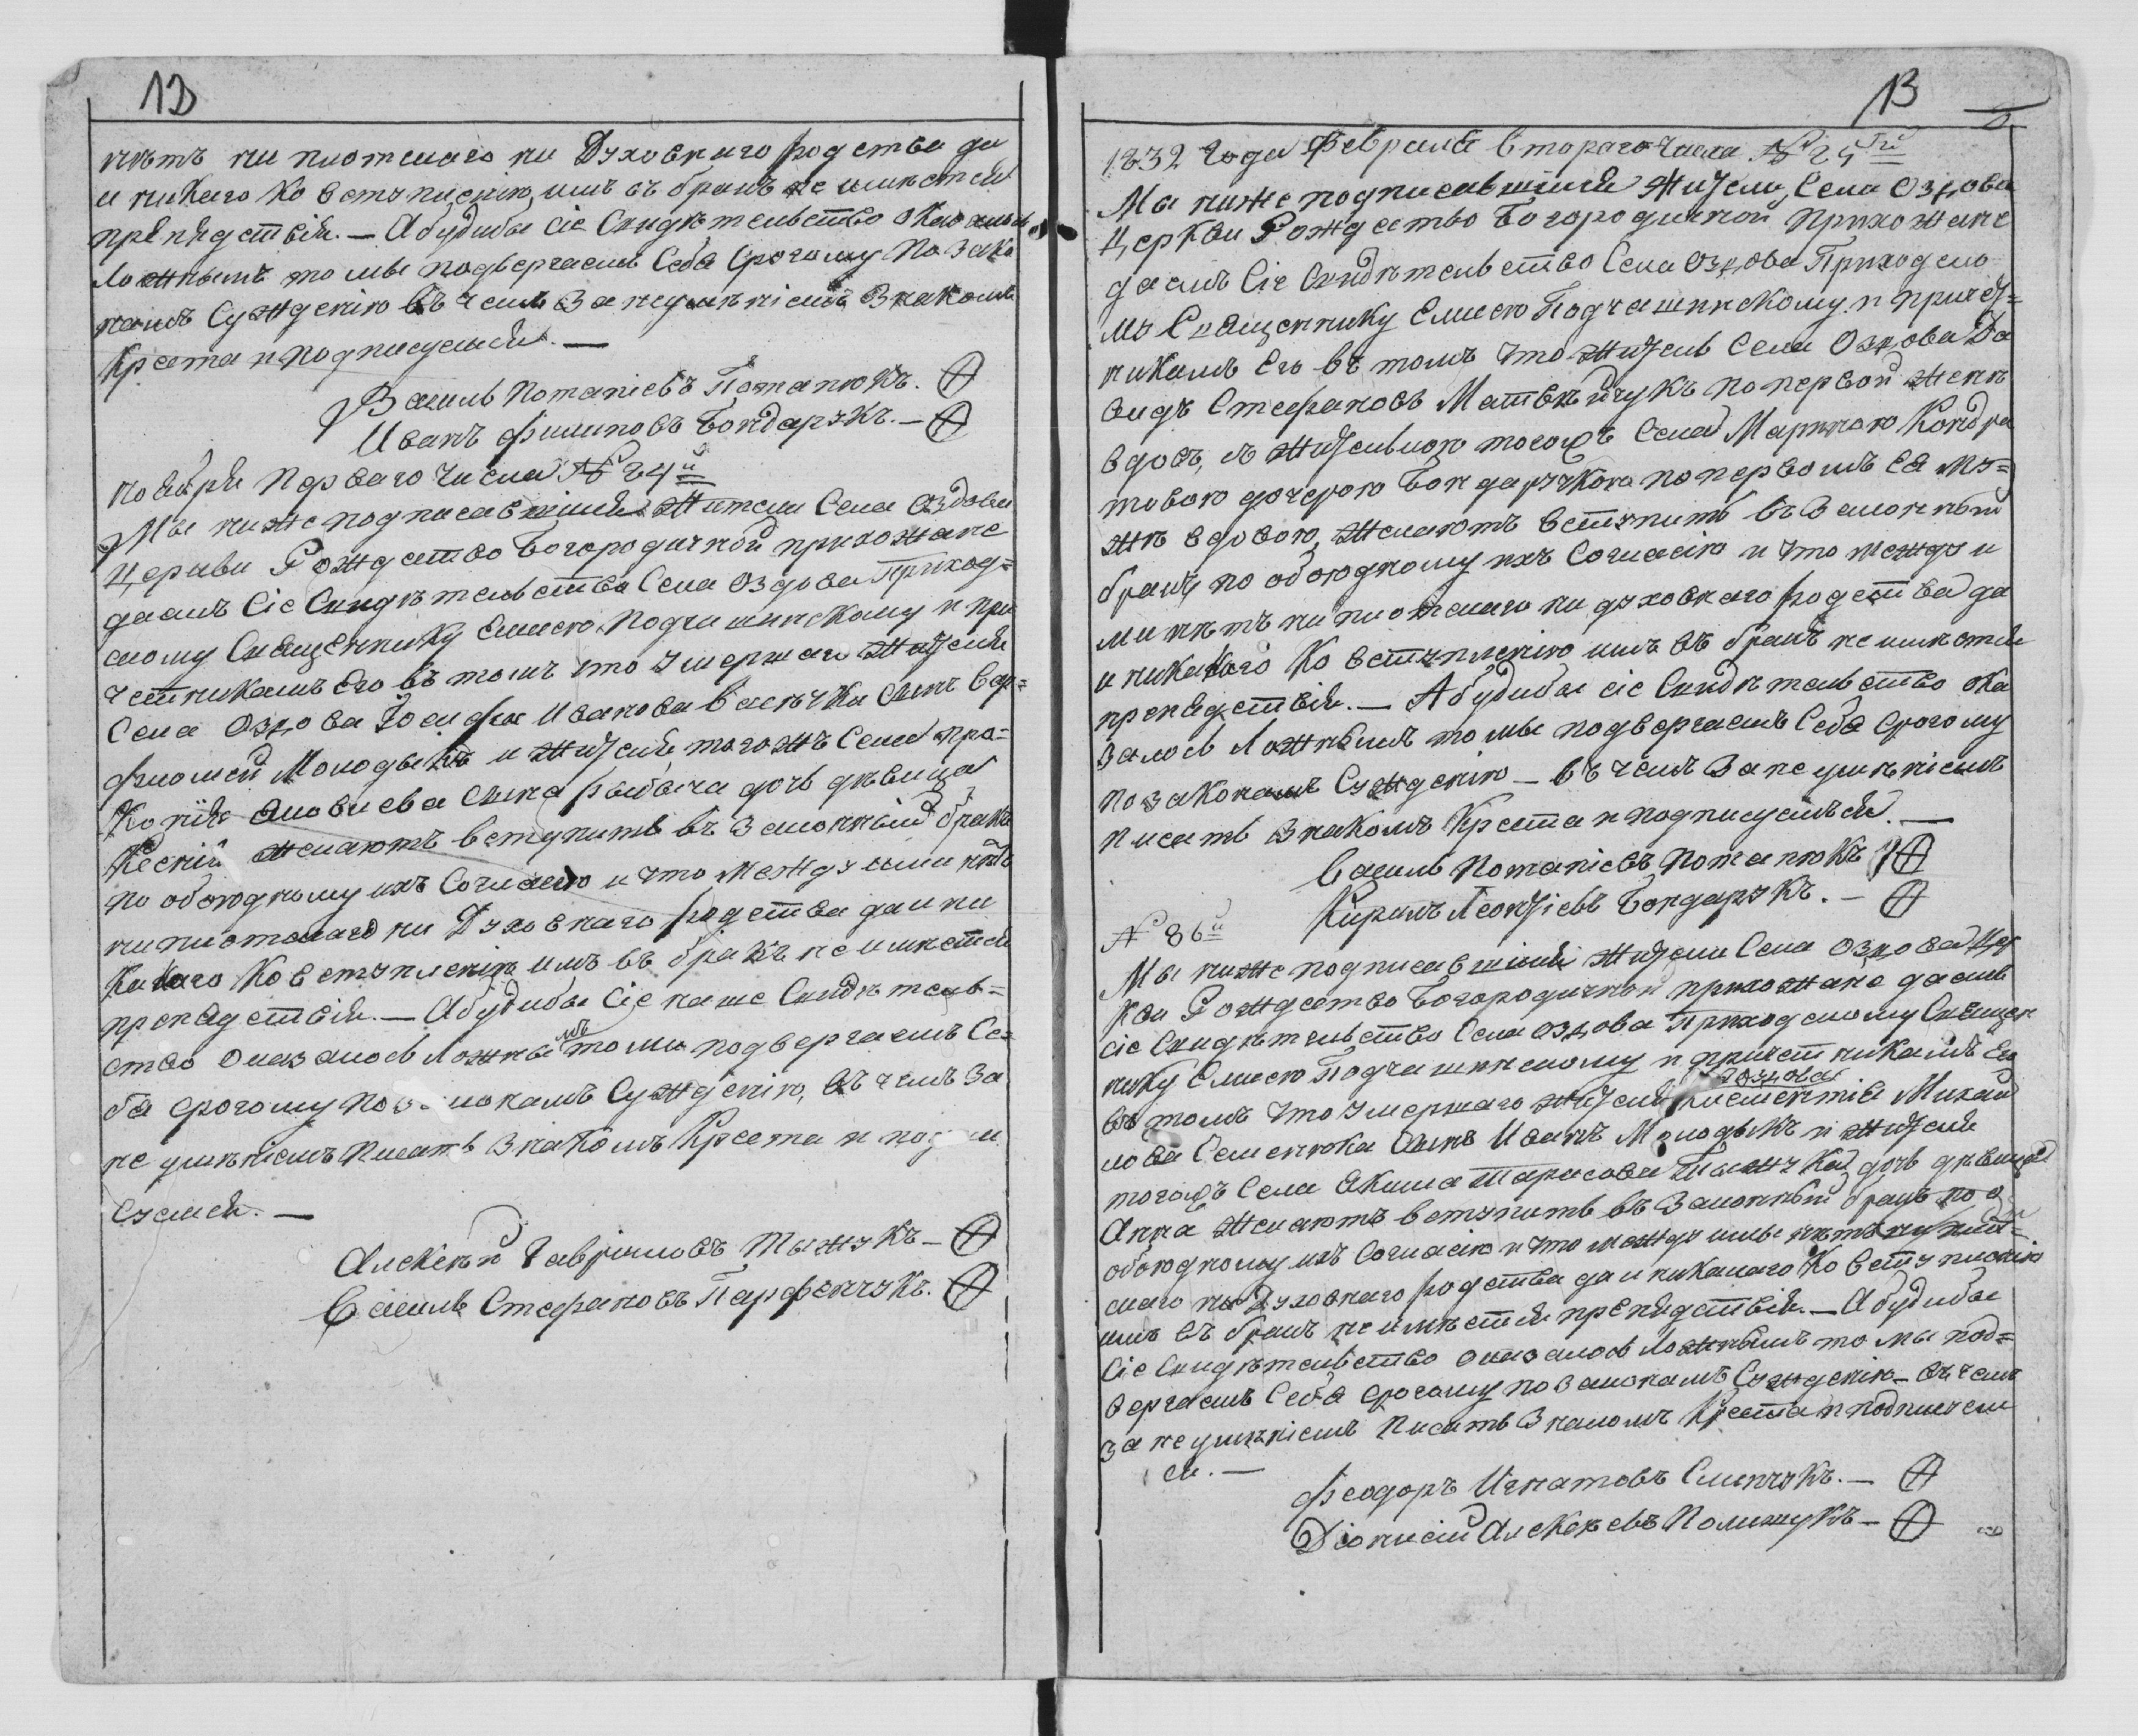 13
нѣтъ ни плотскаго ни Духовнаго родства да
и никаго ко вступленію имъ въ бракъ не имѣется
препядствія. — А будибы сіе Свидѣтельство оказалось
ложнымъ то мы подвергаемъ Себя Срогому по зако
намъ Сужденію въ чемъ за неумѣніемъ Знакомъ
Креста и подписуемся. —
Василь Потапіевъ Потапюкъ.
Иванъ Филиповъ Бондарукъ. —
ноября перваго числа № 24й
Мы нижеподписавшіися Жители Села Оздова
Церкви Рождество Богородичной прихожане
даемъ Сіе Свидѣтельство Села Оздова Приход=
скому Священнику Елисею Подчашинскому и при
четникамъ Его въ томъ что умершаго Жителя
Села Оздова Іосифа Иванова Сынъ Вар=
фломей Молодыкъ и Жителя тогожъ Села Про=
копія сына Рыбача дочь дѣвица
Ксенія желаютъ вступить въ Законный бракъ
по обоюдному ихъ Согласію и что между ими нѣтъ
ни плотскаго ни Духовнаго родства да и ни
каkого ко вступленію имъ въ бракъ не имѣется
препядствія. — А будибы Сіе наше Свидѣтель=
ство оказалось ложнымъ то мы подвергаемъ Се=
бя срогому по законамъ Сужденію, въ чемъ за
не умѣніемъ писать Знакомъ Креста и подпи
суемся. —
Алексѣй Гавріиловъ Тыжукъ —
Василь Стефановъ Парфенчукъ.
13
1832 Года Февраля втораго числа № 25й
Мы нижеподписавшіися Жители Села Оздова
Церкви Рождество Богородичной прихожане
даемъ Сіе Свидѣтельство Села Оздова Приходско
му Священнику Елисею Подчашинскому и причет=
никамъ Его въ томъ что житель Села Оздова Да
видъ Стефановъ Матвѣйчукъ по первой женѣ
вдовъ, съ жительною тогожъ Села Мариною Кондра
товою дочерою Бондаручкою по первомъ Ея му=
жѣ вдовою, желаютъ вступить въ Законный
бракъ по обоюдному ихъ Согласію и что между и
ми нѣтъ ни плотскаго ни духовнаго родства да
и никакого ко вступленію имъ въ бракъ не имѣется
препядствія. — А будибы сіе Свидѣтельство ока
залось ложнымъ то мы подвергаемъ Себя Срогому
по законамъ Сужденію — въ чемъ за не умѣніемъ
писать Знакомъ Креста и подписуемся. —
Василь Потапіевъ Потапюкъ
Кирилъ Леонтіевъ Бондарукъ. —
№ 26й
Мы нижеподписавшіися жители Села Оздова Цер
кви Рождество Богородичной прихожане даемъ
сіе Свидѣтельство Села Оздова Приходскому Священ
нику Елисею Подчашинскому и причетникамъ Его
въ томъ что умершаго жителя Оздова Климентія Михай
лова Семенюка Сынъ Иванъ Молодыкъ и жителя
тогожъ Села Якима Тарасова Тыжука дочь дѣвица
Анна желаютъ вступить въ Законный бракъ по о
обоюдному ихъ Согласію и что между ими нѣтъ ни плот=
скаго ни Духовнаго родства да и никакаго ко вступленію
имъ въ бракъ не имѣется препядствія. — А будибы
Сіе Свидѣтельство оказалось ложнымъ то мы под=
вергаемъ Себя срогому по законамъ Сужденію — въ чемъ
за не умѣніемъ писать Знакомъ Креста и подписуем
ся. —
Феодоръ Игнатовъ —
Діонисій Алексѣевъ Полищукъ —